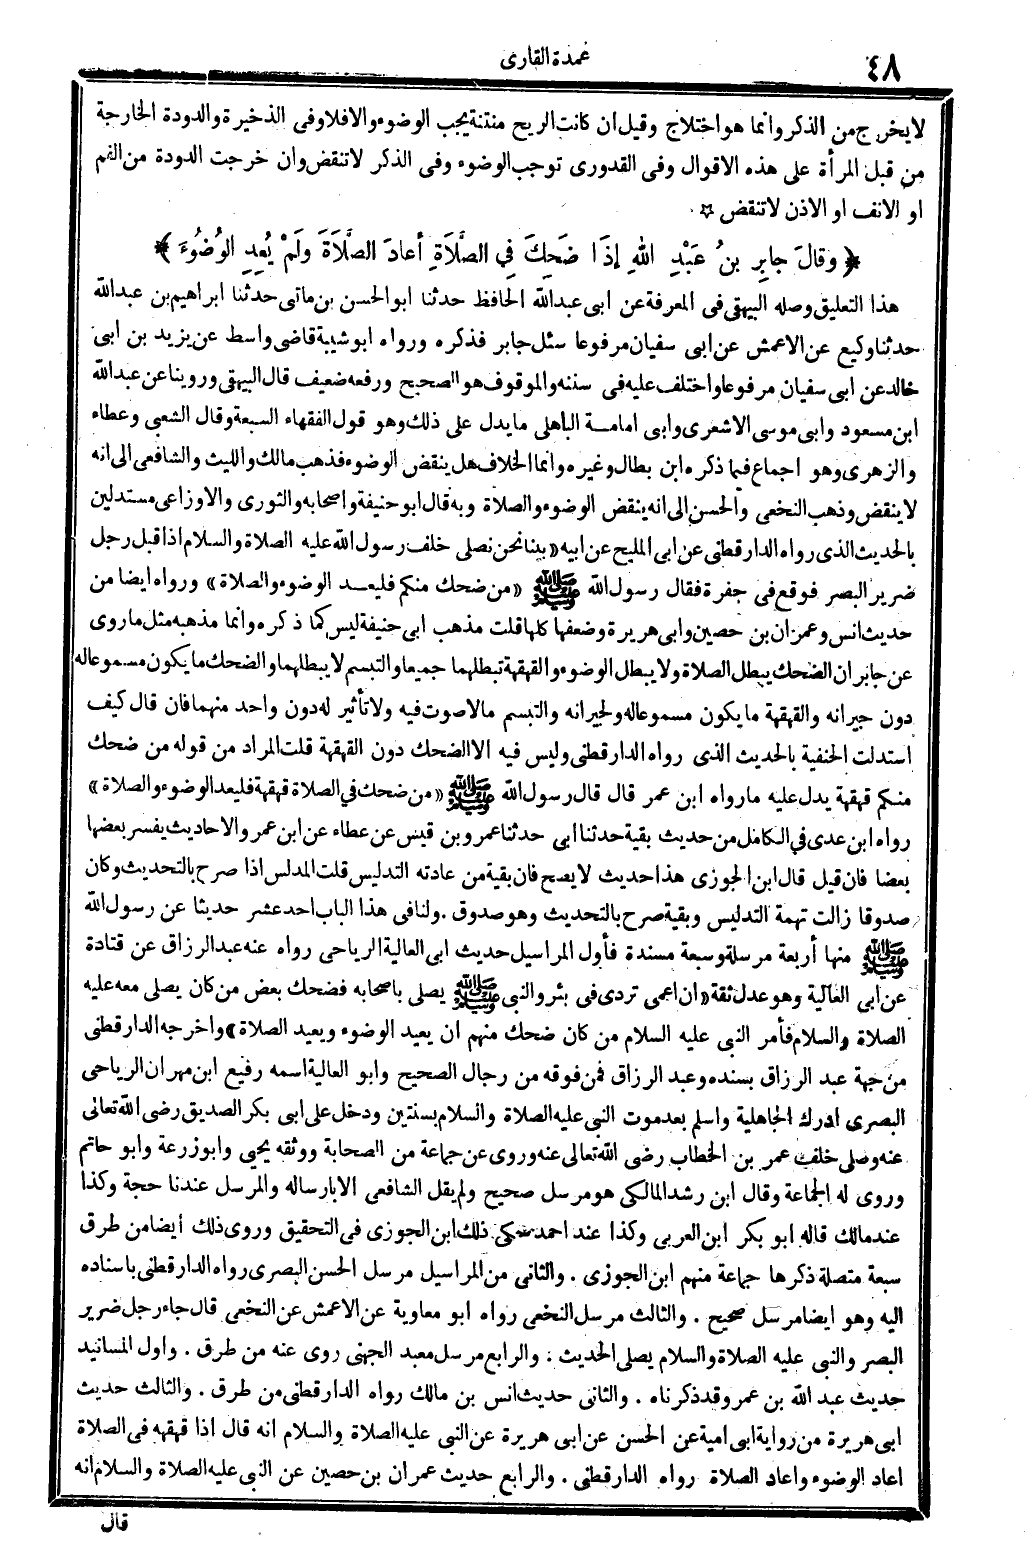 ٤٨
عمدة القارى
لا يخرج من الذكر وانما هو اختلاج وقيل ان كانت الريح منتنة يجب الوضوء والا فلا وفى الذخيرة والدودة الخارجة
من قبل المرأة على هذه الاقوال وفى القدورى توجب الوضوء وفى الذكر لا تنقض وان خرجت الدودة من الفم
او الانف او الاذن لا تنقض ☆.
﴿ وقالَ جابِر بنُ عَبْدِ اللهِ إِذَا ضَحِكَ فِي الصَّلَاةِ أعادَ الصَّلَاةَ ولَمْ يُعِدِ الوُضُوءَ ﴾
هذا التعليق وصله البيهقى فى المعرفة عن ابى عبدالله الحافظ حدثنا ابو الحسن بن ماتى حدثنا ابراهيم بن عبدالله
حدثنا وكيع عن الاعمش عن ابى سفيان مرفوعا سئل جابر فذكره ورواه ابو شيبة قاضى واسط عن يزيد بن ابى
خالد عن ابى سفيان مرفوعا واختلف عليه فى سننه والموقوف هو الصحيح ورفعه ضعيف قال البيهقى وروينا عن عبدالله
ابن مسعود وابى موسى الاشعرى وابى امامة الباهلى ما يدل على ذلك وهو قول الفقهاء السبعة وقال الشعبى وعطاء
والزهرى وهو اجماع فيما ذكره ابن بطال وغيره وانما الخلاف هل ينقض الوضوء فذهب مالك والليث والشافعى الى انه
لا ينقض وذهب النخعى والحسن الى انه ينقض الوضوء والصلاة وبه قال ابو حنيفة واصحابه والثورى والاوزاعى مستدلين
بالحديث الذى رواه الدارقطنى عن ابى المليح عن ابيه «بينا نحن نصلى خلف رسول الله عليه الصلاة والسلام اذا قبل رجل
ضرير البصر فوقع فى حفرة فقال رسول الله ﷺ «من ضحك منكم فليعد الوضوء والصلاة» ورواه ايضا من
حديث انس وعمران بن حصين وابى هريرة وضعفها كلها قلت مذهب ابى حنيفة ليس كما ذكره وانما مذهبه مثل ما روى
عن جابر ان الضحك يبطل الصلاة ولا يبطل الوضوء والقهقهة تبطلهما جميعا والتبسم لا يبطلهما والضحك ما يكون مسموعا له
دون جيرانه والقهقهة ما يكون مسموعا له ولجيرانه والتبسم ما لا صوت فيه ولا تأثير له دون واحد منهما فان قال كيف
استدلت الحنفية بالحديث الذى رواه الدارقطنى وليس فيه الا الضحك دون القهقهة قلت المراد من قوله من ضحك
منكم قهقهة يدل عليه ما رواه ابن عمر قال قال رسول الله ﷺ «من ضحك في الصلاة قهقهة فليعد الوضوء والصلاة»
رواه ابن عدى في الكامل من حديث بقية حدثنا ابى حدثنا عمرو بن قيس عن عطاء عن ابن عمر والاحاديث يفسر بعضها
بعضا فان قيل قال ابن الجوزى هذا حديث لا يصح فان بقية من عادته التدليس قلت المدلس اذا صرح بالتحديث وكان
صدوقا زالت تهمة التدليس وبقية صرح بالتحديث وهو صدوق . ولنا فى هذا الباب احد عشر حديثا عن رسول الله
ﷺ منها أربعة مرسلة وسبعة مسندة فأول المراسيل حديث ابى العالية الرياحى رواه عنه عبد الرزاق عن قتادة
عن ابى العالية وهو عدل ثقة «ان اعمى تردى فى بئر والنبى ﷺ يصلى باصحابه فضحك بعض من كان يصلى معه عليه
الصلاة والسلام فأمر النبى عليه السلام من كان ضحك منهم ان يعيد الوضوء ويعيد الصلاة» واخرجه الدارقطنى
من جهة عبد الرزاق بسنده وعبد الرزاق فمن فوقه من رجال الصحيح وابو العالية اسمه رفيع ابن مهران الرياحى
البصرى ادرك الجاهلية واسلم بعد موت النبى عليه الصلاة والسلام بسنتين ودخل على ابى بكر الصديق رضى الله تعالى
عنه وصلى خلف عمر بن الخطاب رضى الله تعالى عنه وروى عن جماعة من الصحابة ووثقه يحيى وابو زرعة وابو حاتم
وروى له الجماعة وقال ابن رشد المالكى هو مرسل صحيح ولم يقل الشافعى الا بارساله والمرسل عندنا حجة وكذا
عند مالك قاله ابو بكر ابن العربى وكذا عند احمد حكى ذلك ابن الجوزى فى التحقيق وروى ذلك أيضا من طرق
سبعة متصلة ذكرها جماعة منهم ابن الجوزى . والثانى من المراسيل مرسل الحسن البصرى رواه الدارقطنى باسناده
اليه وهو ايضا مرسل صحيح . والثالث مرسل النخعى رواه ابو معاوية عن الاعمش عن النخعى قال جاء رجل ضرير
البصر والنبى عليه الصلاة والسلام يصلى الحديث . والرابع مرسل معبد الجهنى روى عنه من طرق . واول المسانيد
حديث عبد الله بن عمر وقد ذكرناه . والثانى حديث انس بن مالك رواه الدارقطنى من طرق . والثالث حديث
ابى هريرة من رواية ابى امية عن الحسن عن ابى هريرة عن النبى عليه الصلاة والسلام انه قال اذا قهقه فى الصلاة
اعاد الوضوء واعاد الصلاة رواه الدارقطنى . والرابع حديث عمران بن حصين عن النبى عليه الصلاة والسلام انه
قال